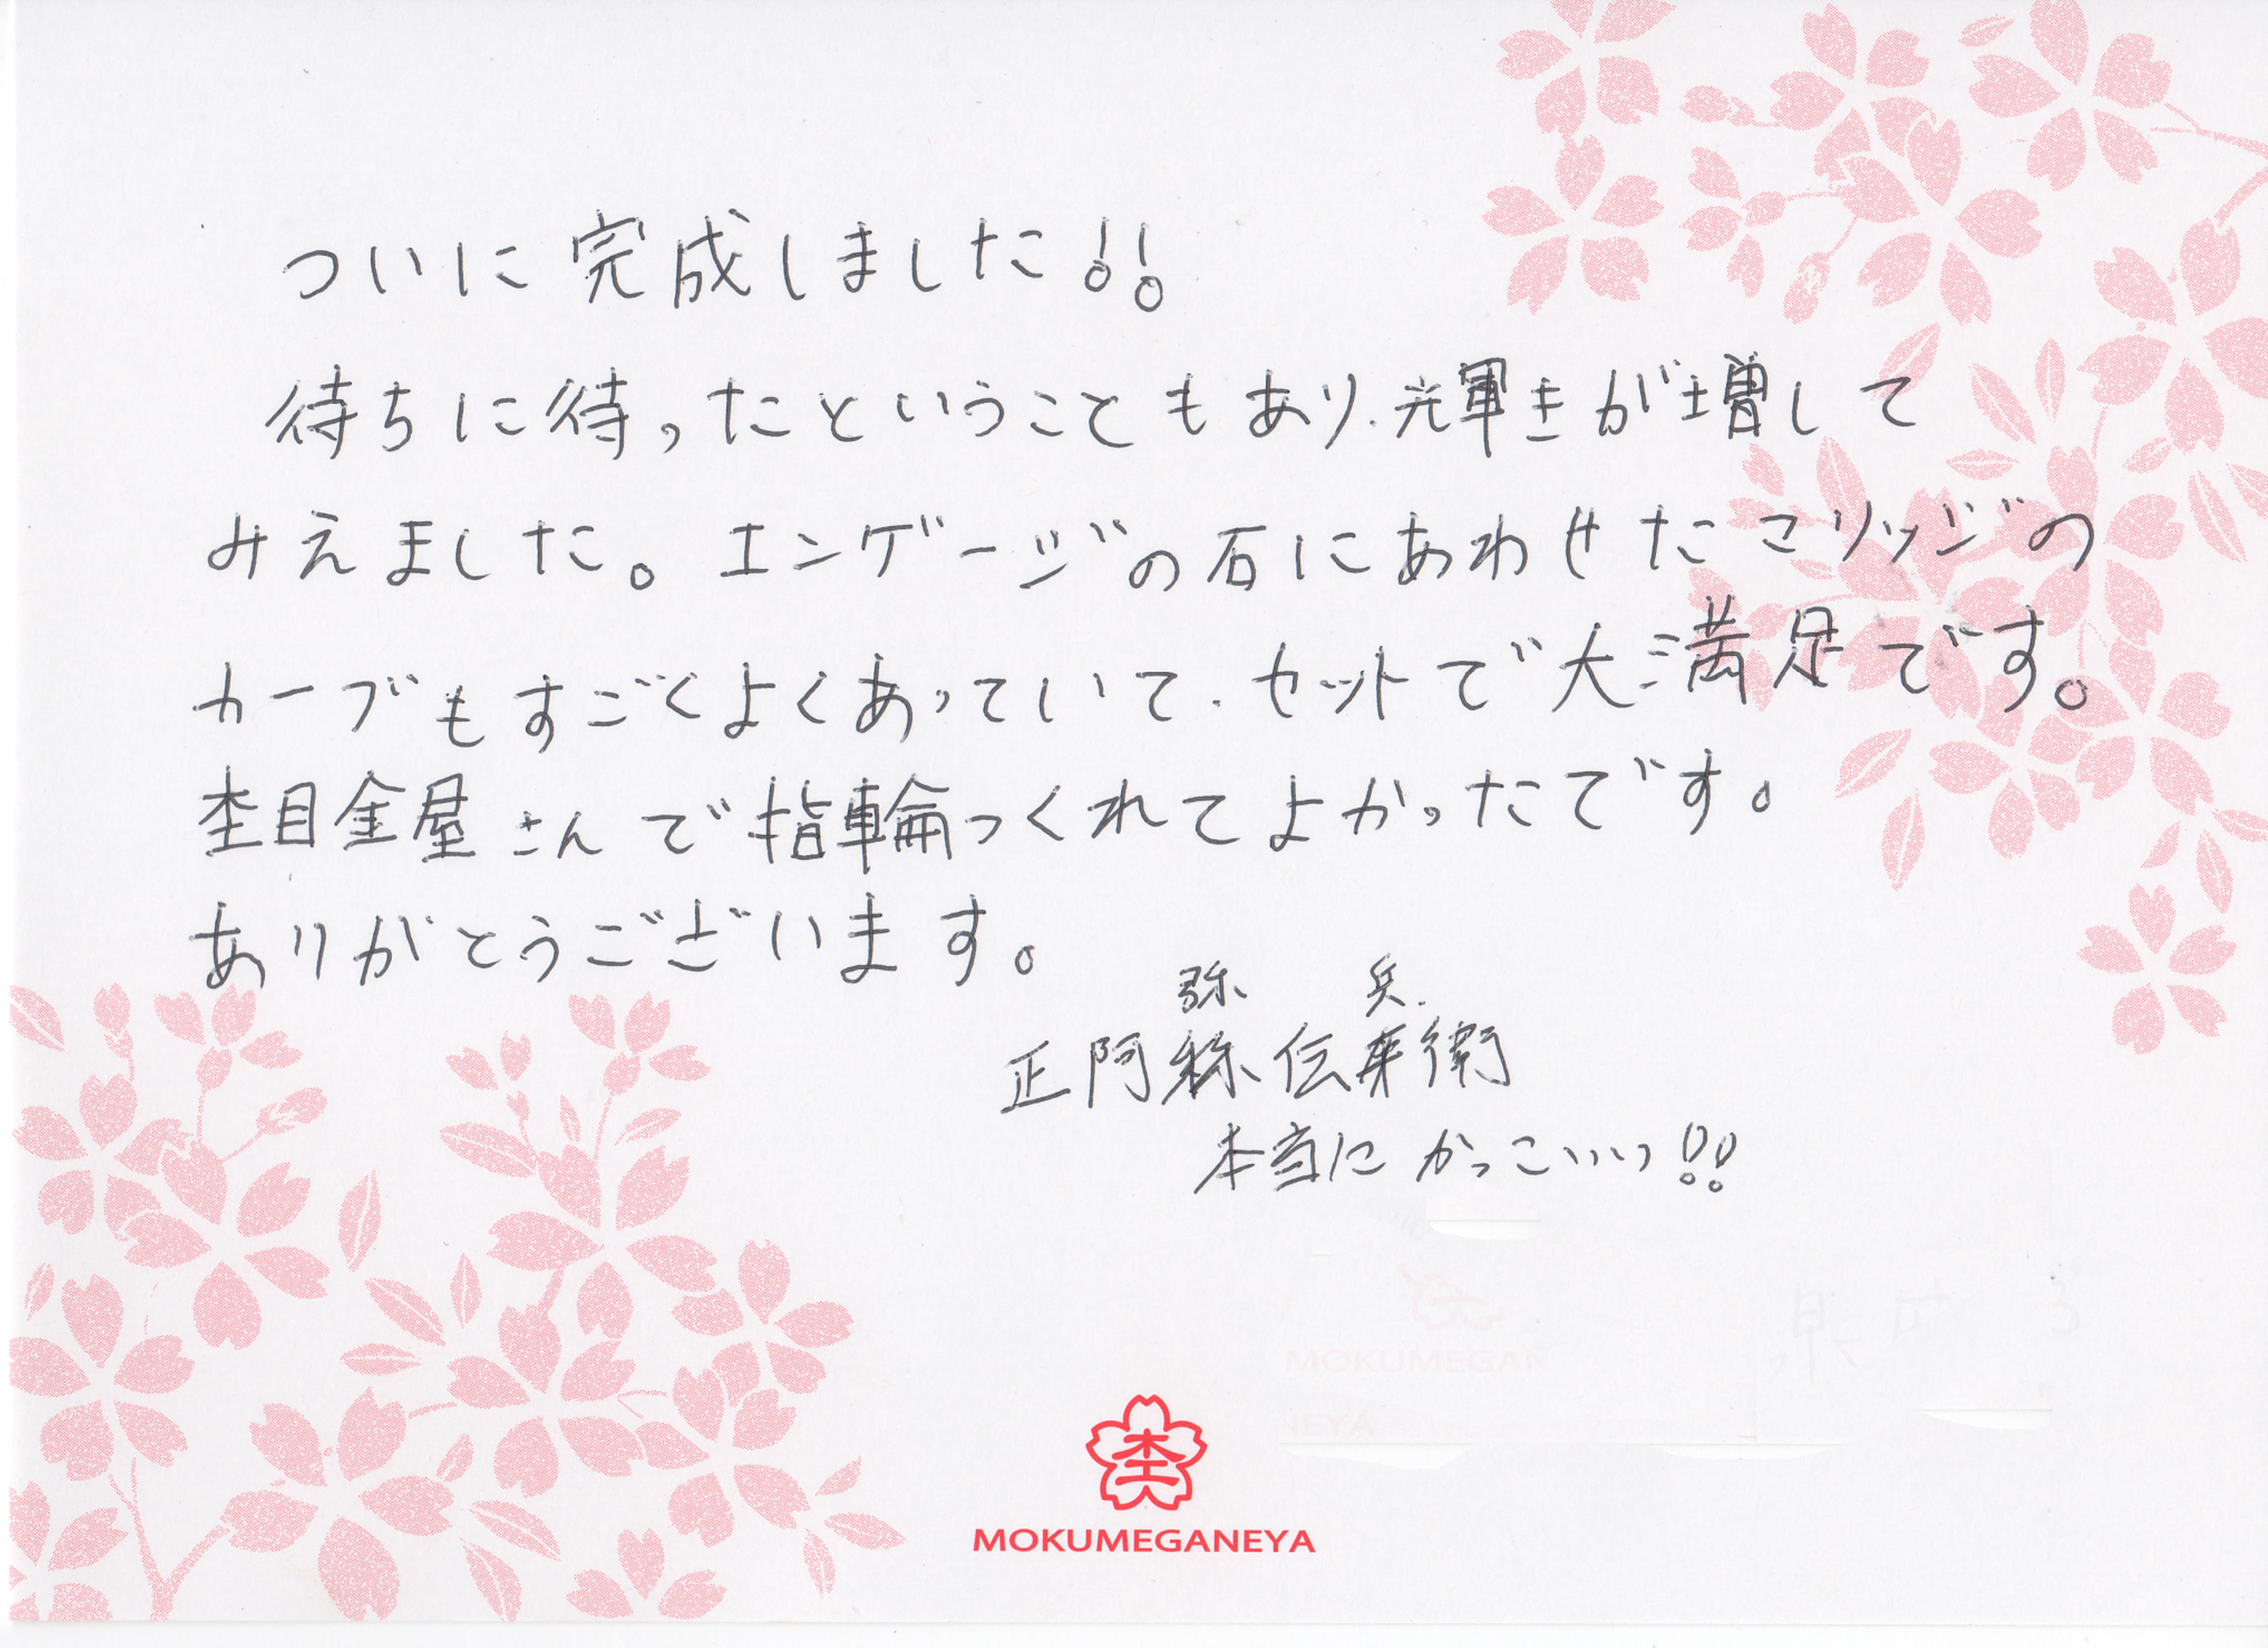 ついに完成しました!!
待ちに待ったということもあり、輝きが増して
みえました。エンゲージの石にあわせたマリッジの
カーブもすごくよくあっていて、セットで大満足です。
杢目金屋さんで指輪つくれてよかったです。
ありがとうございます。
弥 兵
正阿弥伝兵衛
本当にかっこいい!!
杢
MOKUMEGANEYA